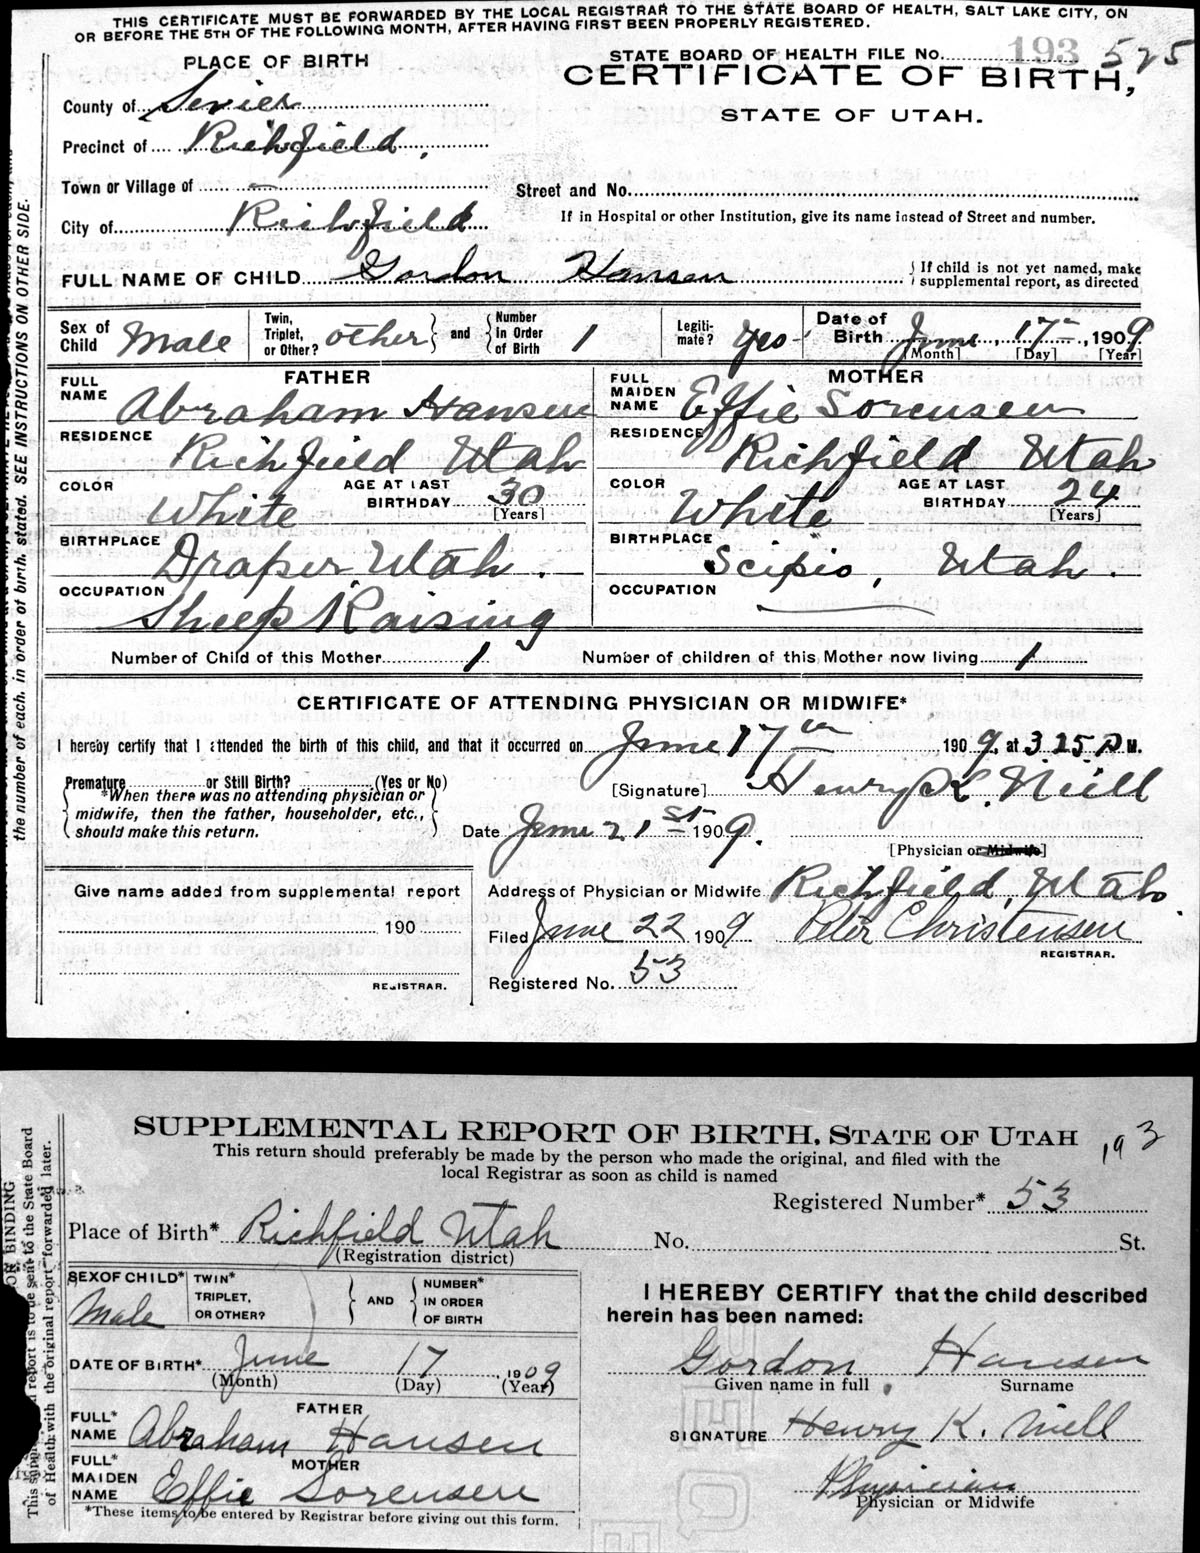 THIS CERTIFICATE MUST BE FORWARDED BY THE LOCAL REGISTRAR TO THE STATE BOARD OF HEALTH, SALT LAKE CITY, ON
OR BEFORE THE 5TH OF THE FOLLOWING MONTH, AFTER HAVING FIRST BEEN PROPERLY REGISTERED.
STATE BOARD OF HEALTH FILE No. 193 525
PLACE OF BIRTH
CERTIFICATE OF BIRTH,
STATE OF UTAH.
County of Sevier
Precinct of Richfield,
Town or Village of —
Street and No.
City of Richfield
If in Hospital or other Institution, give its name instead of Street and number.
FULL NAME OF CHILD Gordon Hansen
If child is not yet named, make
supplemental report, as directed
Sex of Child Male
Twin, Triplet, or Other? other and Number in Order of Birth 1
Legitimate? Yes
Date of Birth June 17th, 1909
[Month] [Day] [Year]
FATHER
FULL NAME Abraham Hansen
RESIDENCE Richfield Utah
COLOR White AGE AT LAST BIRTHDAY 30 [Years]
BIRTHPLACE Draper Utah.
OCCUPATION Sheep Raising
MOTHER
FULL MAIDEN NAME Effie Sorensen
RESIDENCE Richfield Utah
COLOR White AGE AT LAST BIRTHDAY 24 [Years]
BIRTHPLACE Scipio, Utah.
OCCUPATION
Number of Child of this Mother 1 Number of children of this Mother now living 1
CERTIFICATE OF ATTENDING PHYSICIAN OR MIDWIFE*
I hereby certify that I attended the birth of this child, and that it occurred on June 17th 1909, at 3 25 P M.
Premature or Still Birth? (Yes or No)
*When there was no attending physician or
midwife, then the father, householder, etc.,
should make this return.
[Signature] Henry K. Neill
Date June 21st 1909.
[Physician or Midwife]
Give name added from supplemental report
190
REGISTRAR.
Address of Physician or Midwife Richfield, Utah
Filed June 22 1909 Peter Christensen
REGISTRAR.
Registered No. 53
the number of each, in order of birth, stated. SEE INSTRUCTIONS ON OTHER SIDE.
SUPPLEMENTAL REPORT OF BIRTH, STATE OF UTAH 193
This return should preferably be made by the person who made the original, and filed with the
local Registrar as soon as child is named
Registered Number* 53
Place of Birth* Richfield Utah No. St.
(Registration district)
SEX OF CHILD* Male
TWIN* TRIPLET, OR OTHER? AND NUMBER* IN ORDER OF BIRTH
DATE OF BIRTH* June 17 1909
(Month) (Day) (Year)
FATHER
FULL* NAME Abraham Hansen
MOTHER
FULL* MAIDEN NAME Effie Sorensen
*These items to be entered by Registrar before giving out this form.
I HEREBY CERTIFY that the child described
herein has been named:
Gordon Hansen
Given name in full Surname
SIGNATURE Henry K. Neill
Physician
Physician or Midwife
BINDING
This report is to be sent to the State Board
of Health with the original report forwarded later.